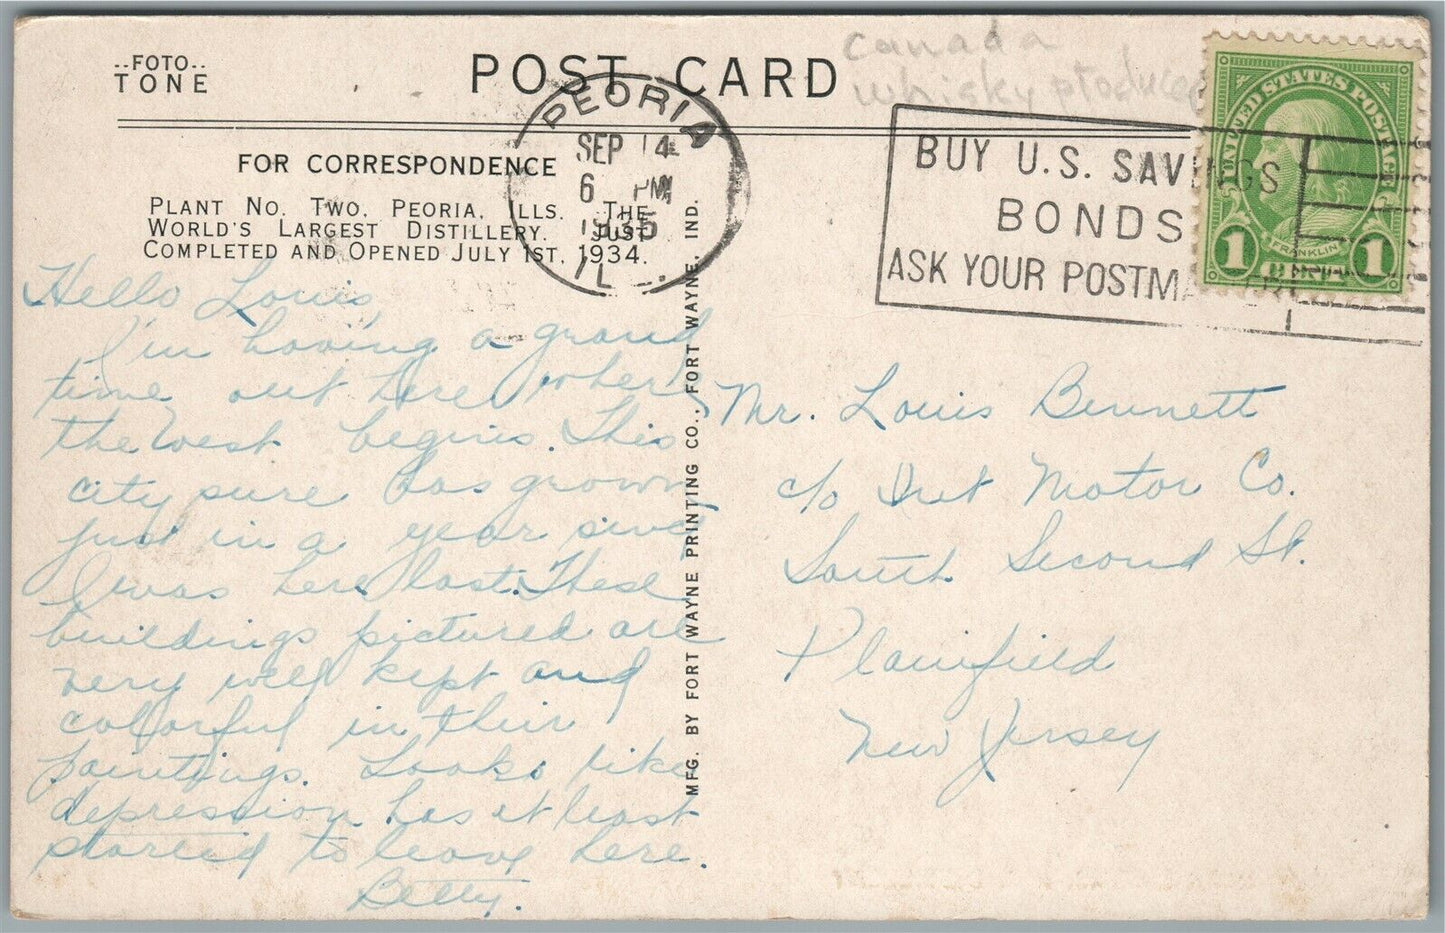 --FOTO--
TONE
POST CARD
Canada
whisky produced
PEORIA
SEP 14
6 PM
1935
IL
BUY U.S. SAVINGS
BONDS
ASK YOUR POSTMA
UNITED STATES POSTAGE
FRANKLIN
1 CENT 1
FOR CORRESPONDENCE
PLANT NO. TWO, PEORIA, ILLS. THE
WORLD'S LARGEST DISTILLERY. JUST
COMPLETED AND OPENED JULY 1ST, 1934.
Hello Louis,
I'm having a grand
time out here where
the west begins. This
city sure has grown
just in a year since
I was here last. These
buildings pictured are
very well kept and
colorful in their
paintings. Looks like
depression has at least
started to leave here.
Betty.
MFG. BY FORT WAYNE PRINTING CO., FORT WAYNE, IND.
Mr. Louis Bennett
c/o Motor Co.
South Second St.
Plainfield
New Jersey